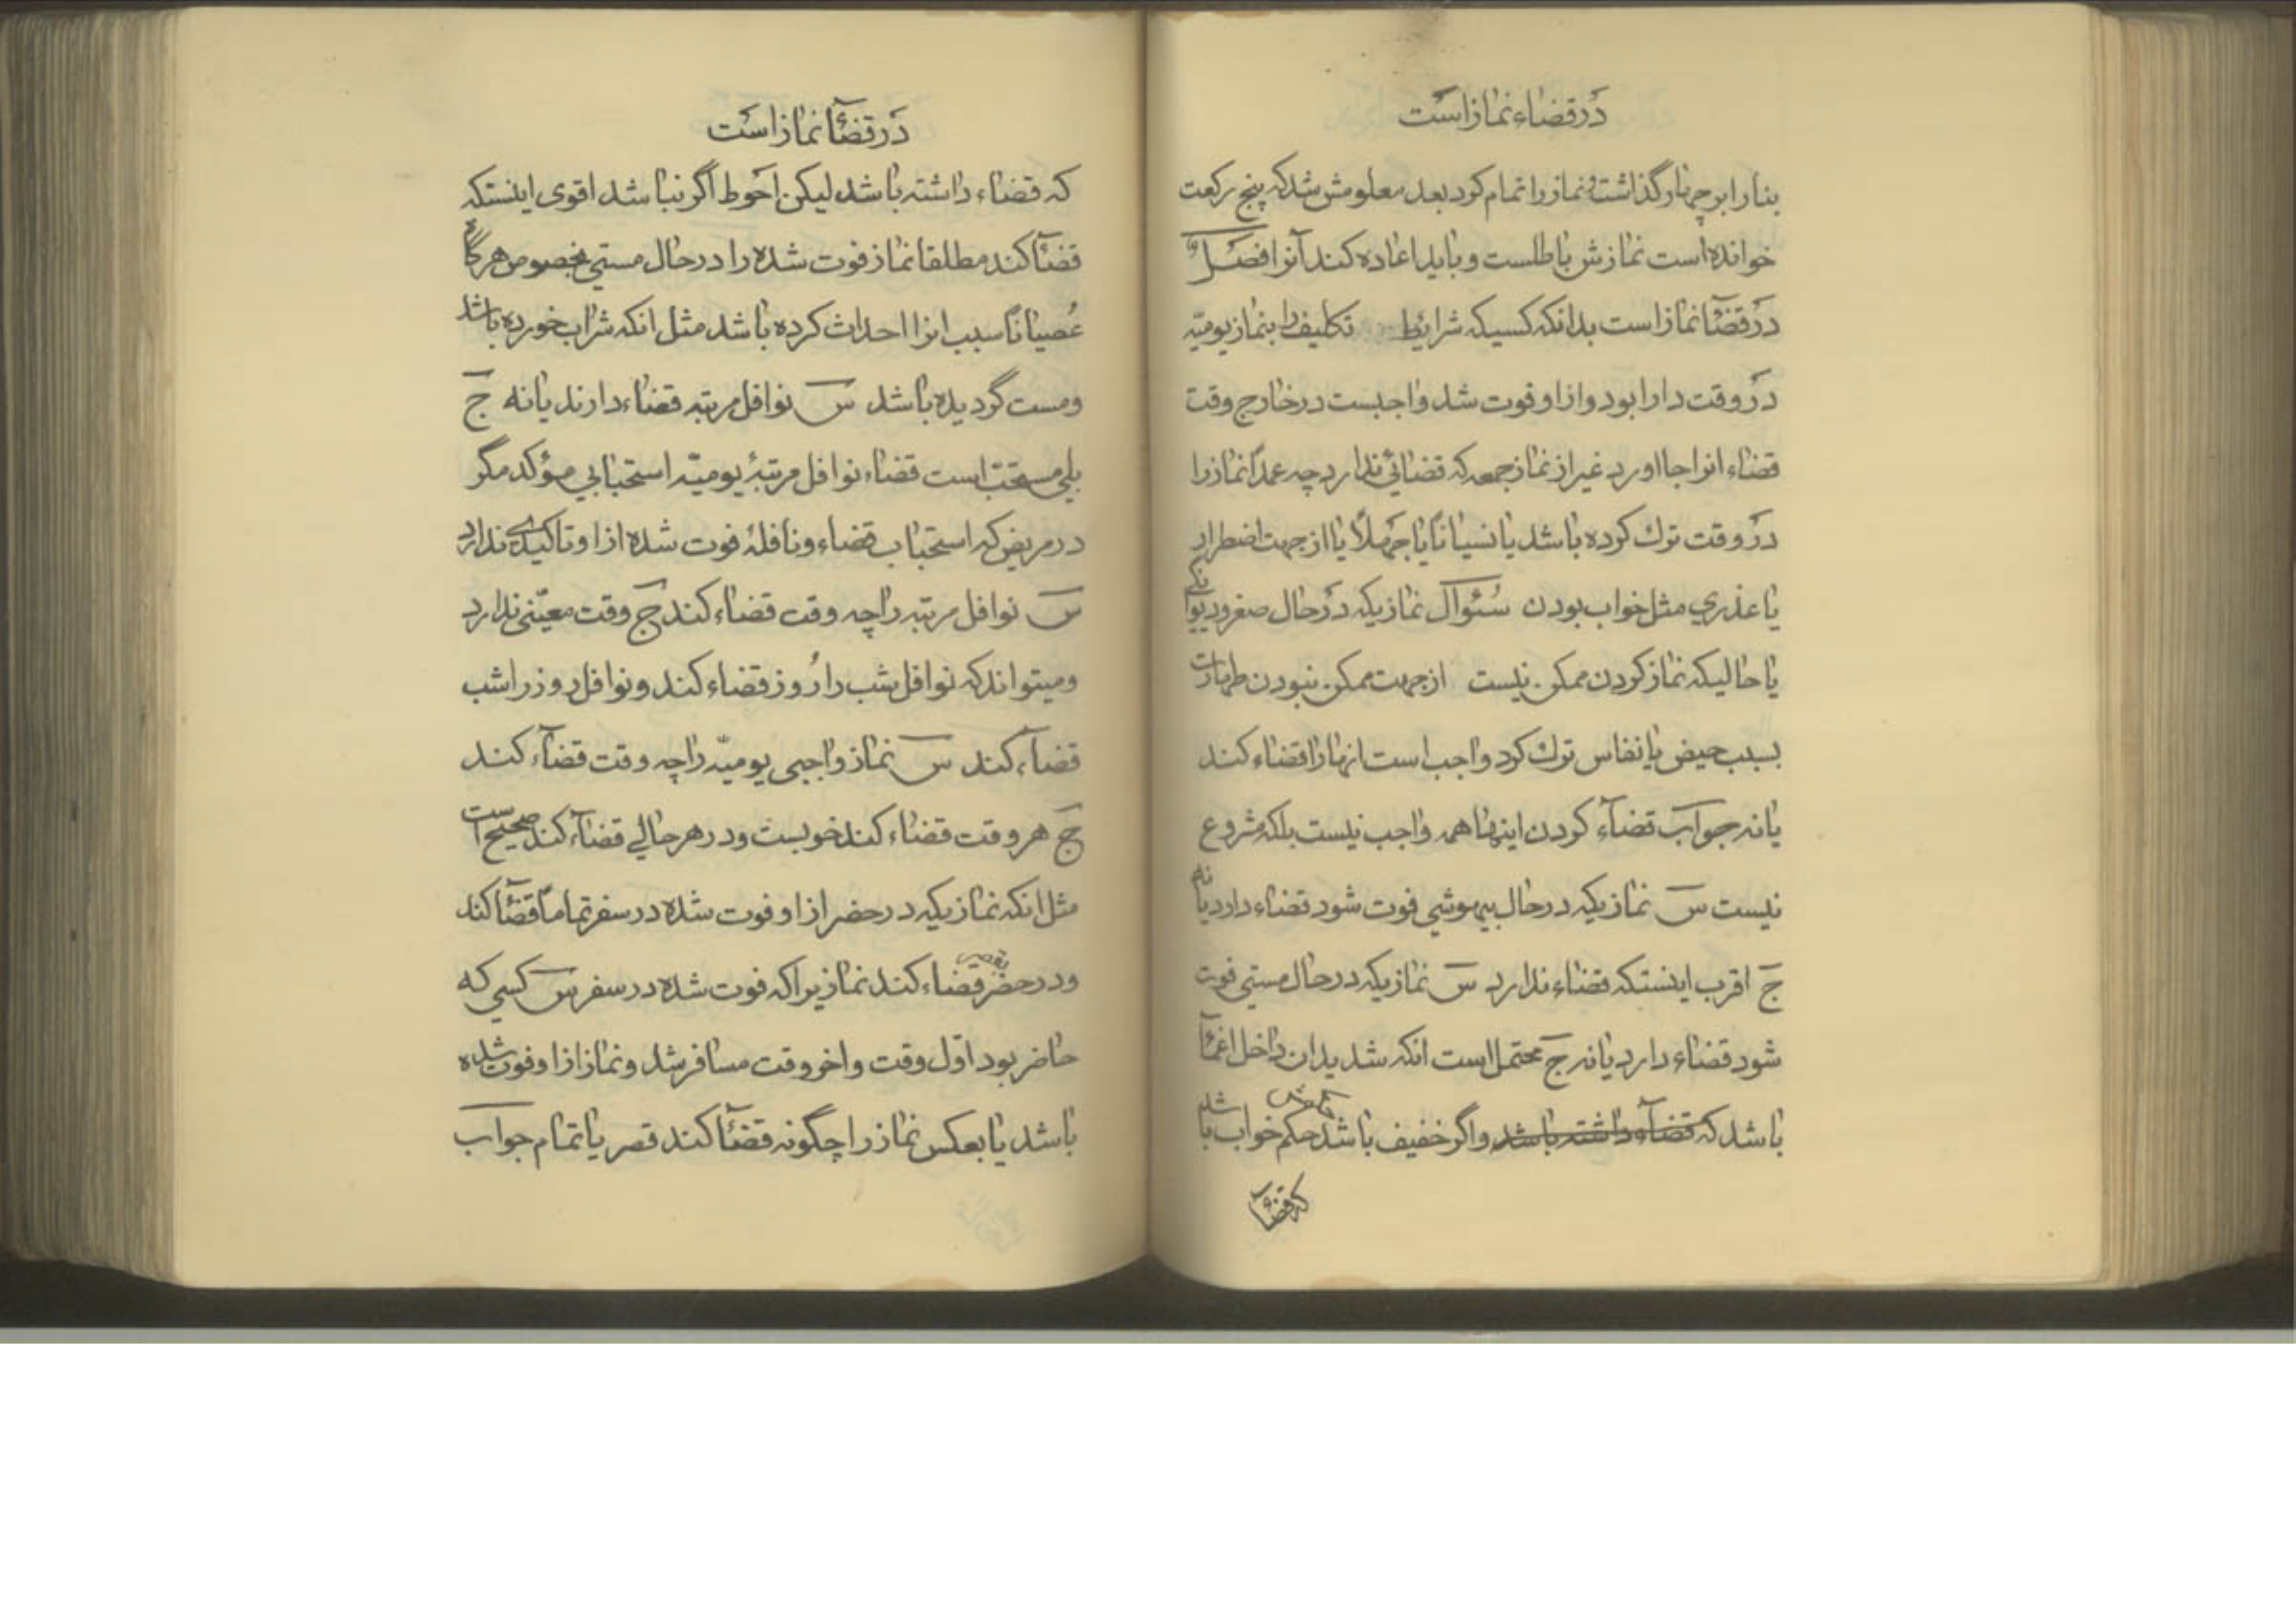 در قضاء نماز است
بنا را بر چهار گذاشت و نماز را تمام کرد بعد معلومش شد که پنج رکعت
خوانده است نمازش باطلست و باید اعاده کند آنرا فصل
در قضآء نماز است بدانکه کسیکه شرایط تکلیف را بنماز یومیّه
در وقت دارا بود و از او فوت شد واجبست در خارج وقت
قضاء انرا بجا اورد غیر از نماز جمعه که قضائی ندارد چه عمداً نماز را
در وقت ترک کرده باشد یا نسیاناً یا جهلاً یا از جهت اضطرار
یا عذری مثل خواب بودن سئوال نمازیکه در حال صغر و دیوانگی
یا حالیکه نماز کردن ممکن نیست از جهت ممکن نبودن طهارت
بسبب حیض یا نفاس ترک کرد واجب است انها را قضاء کند
یا نه جواب قضآء کردن اینها همه واجب نیست بلکه مشروع
نیست س نمازیکه در حال بیهوشی فوت شود قضاء دارد یا نه
ج اقرب اینستکه قضاء ندارد س نمازیکه در حال مستی فوت
شود قضاء دارد یا نه ج محتمل است انکه شدید ان داخل اغمآء
باشد که قضآء داشته باشد و اگر خفیف باشد حکم خواب باشد
که قضآء
در قضآء نماز است
که قضاء داشته باشد لیکن احوط اگر نباشد اقوی اینستکه
قضآء کند مطلقا نماز فوت شده را در حال مستی بخصوص هرگاه
عصیاناً سبب انرا احداث کرده باشد مثل انکه شراب خورده باشد
و مست گردیده باشد س نوافل مرتبه قضاء دارند یا نه ج
بلی مستحبّ است قضاء نوافل مرتبهٔ یومیّه استحبابی مؤکد مگر
در مریض که استحباب قضاء و نافلهٔ فوت شده از او تاکیدی ندارد
س نوافل مرتبه را چه وقت قضاء کند ج وقت معیّنی ندارد
و میتواند که نوافل شب را روز قضاء کند و نوافل روز را شب
قضآء کند س نماز واجبی یومیّه را چه وقت قضآء کند
ج هر وقت قضاء کند خوبست و در هر حالی قضآء کند صحیح است
مثل انکه نمازیکه در حضر از او فوت شده در سفر تماماً قضآء کند
و در حضر قضاء کند نمازیرا که فوت شده در سفر س کسی که
حاضر بود اوّل وقت و اخر وقت مسافر شد و نماز از او فوت شده
باشد یا بعکس نماز را چگونه قضآء کند قصر یا تمام جواب